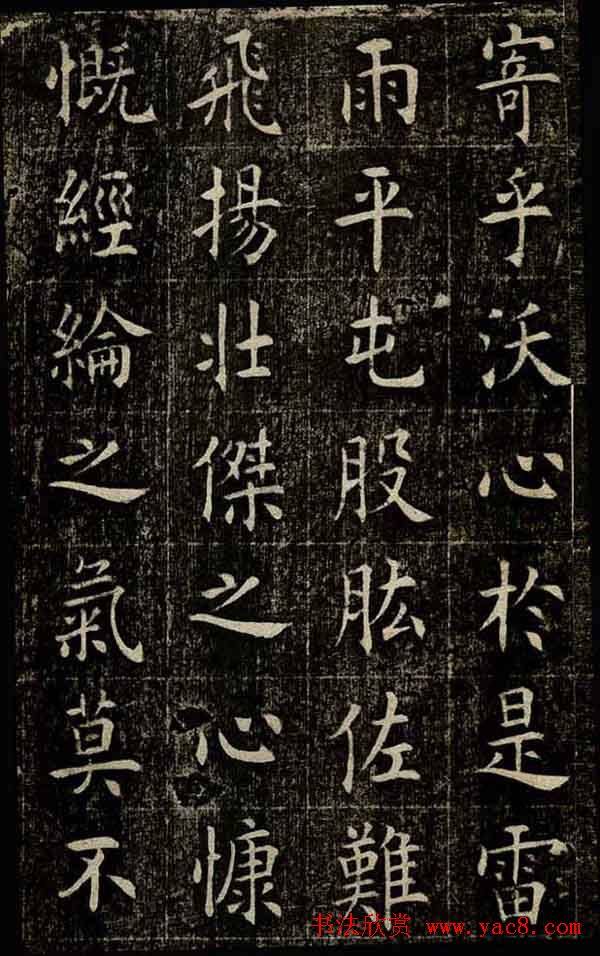 寄乎沃心於是雷
雨平屯股肱佐難
飛揚壯傑之心慷
慨經綸之氣莫不
书法欣赏 www.yac8.com